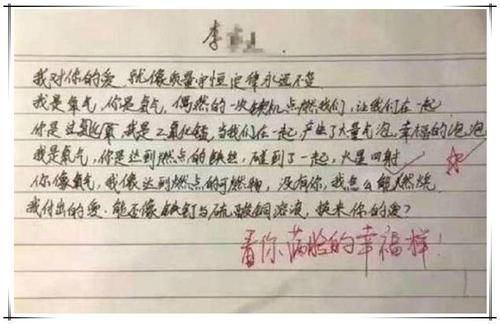 李
我对你的爱 就像质量守恒定律永远不变
我是氧气,你是氢气,偶然的一次契机点燃我们,让我们在一起
你是过氧化氢,我是二氧化锰,当我们在一起,产生了大量气泡,幸福的泡泡
我是氧气,你是达到燃点的铁丝,碰到了一起,火星四射
你像氧气,我像达到燃点的可燃物,没有你,我怎么能燃烧
我付出的爱,能否像铁钉与硫酸铜溶液,换来你的爱?
看你满脸的幸福样!